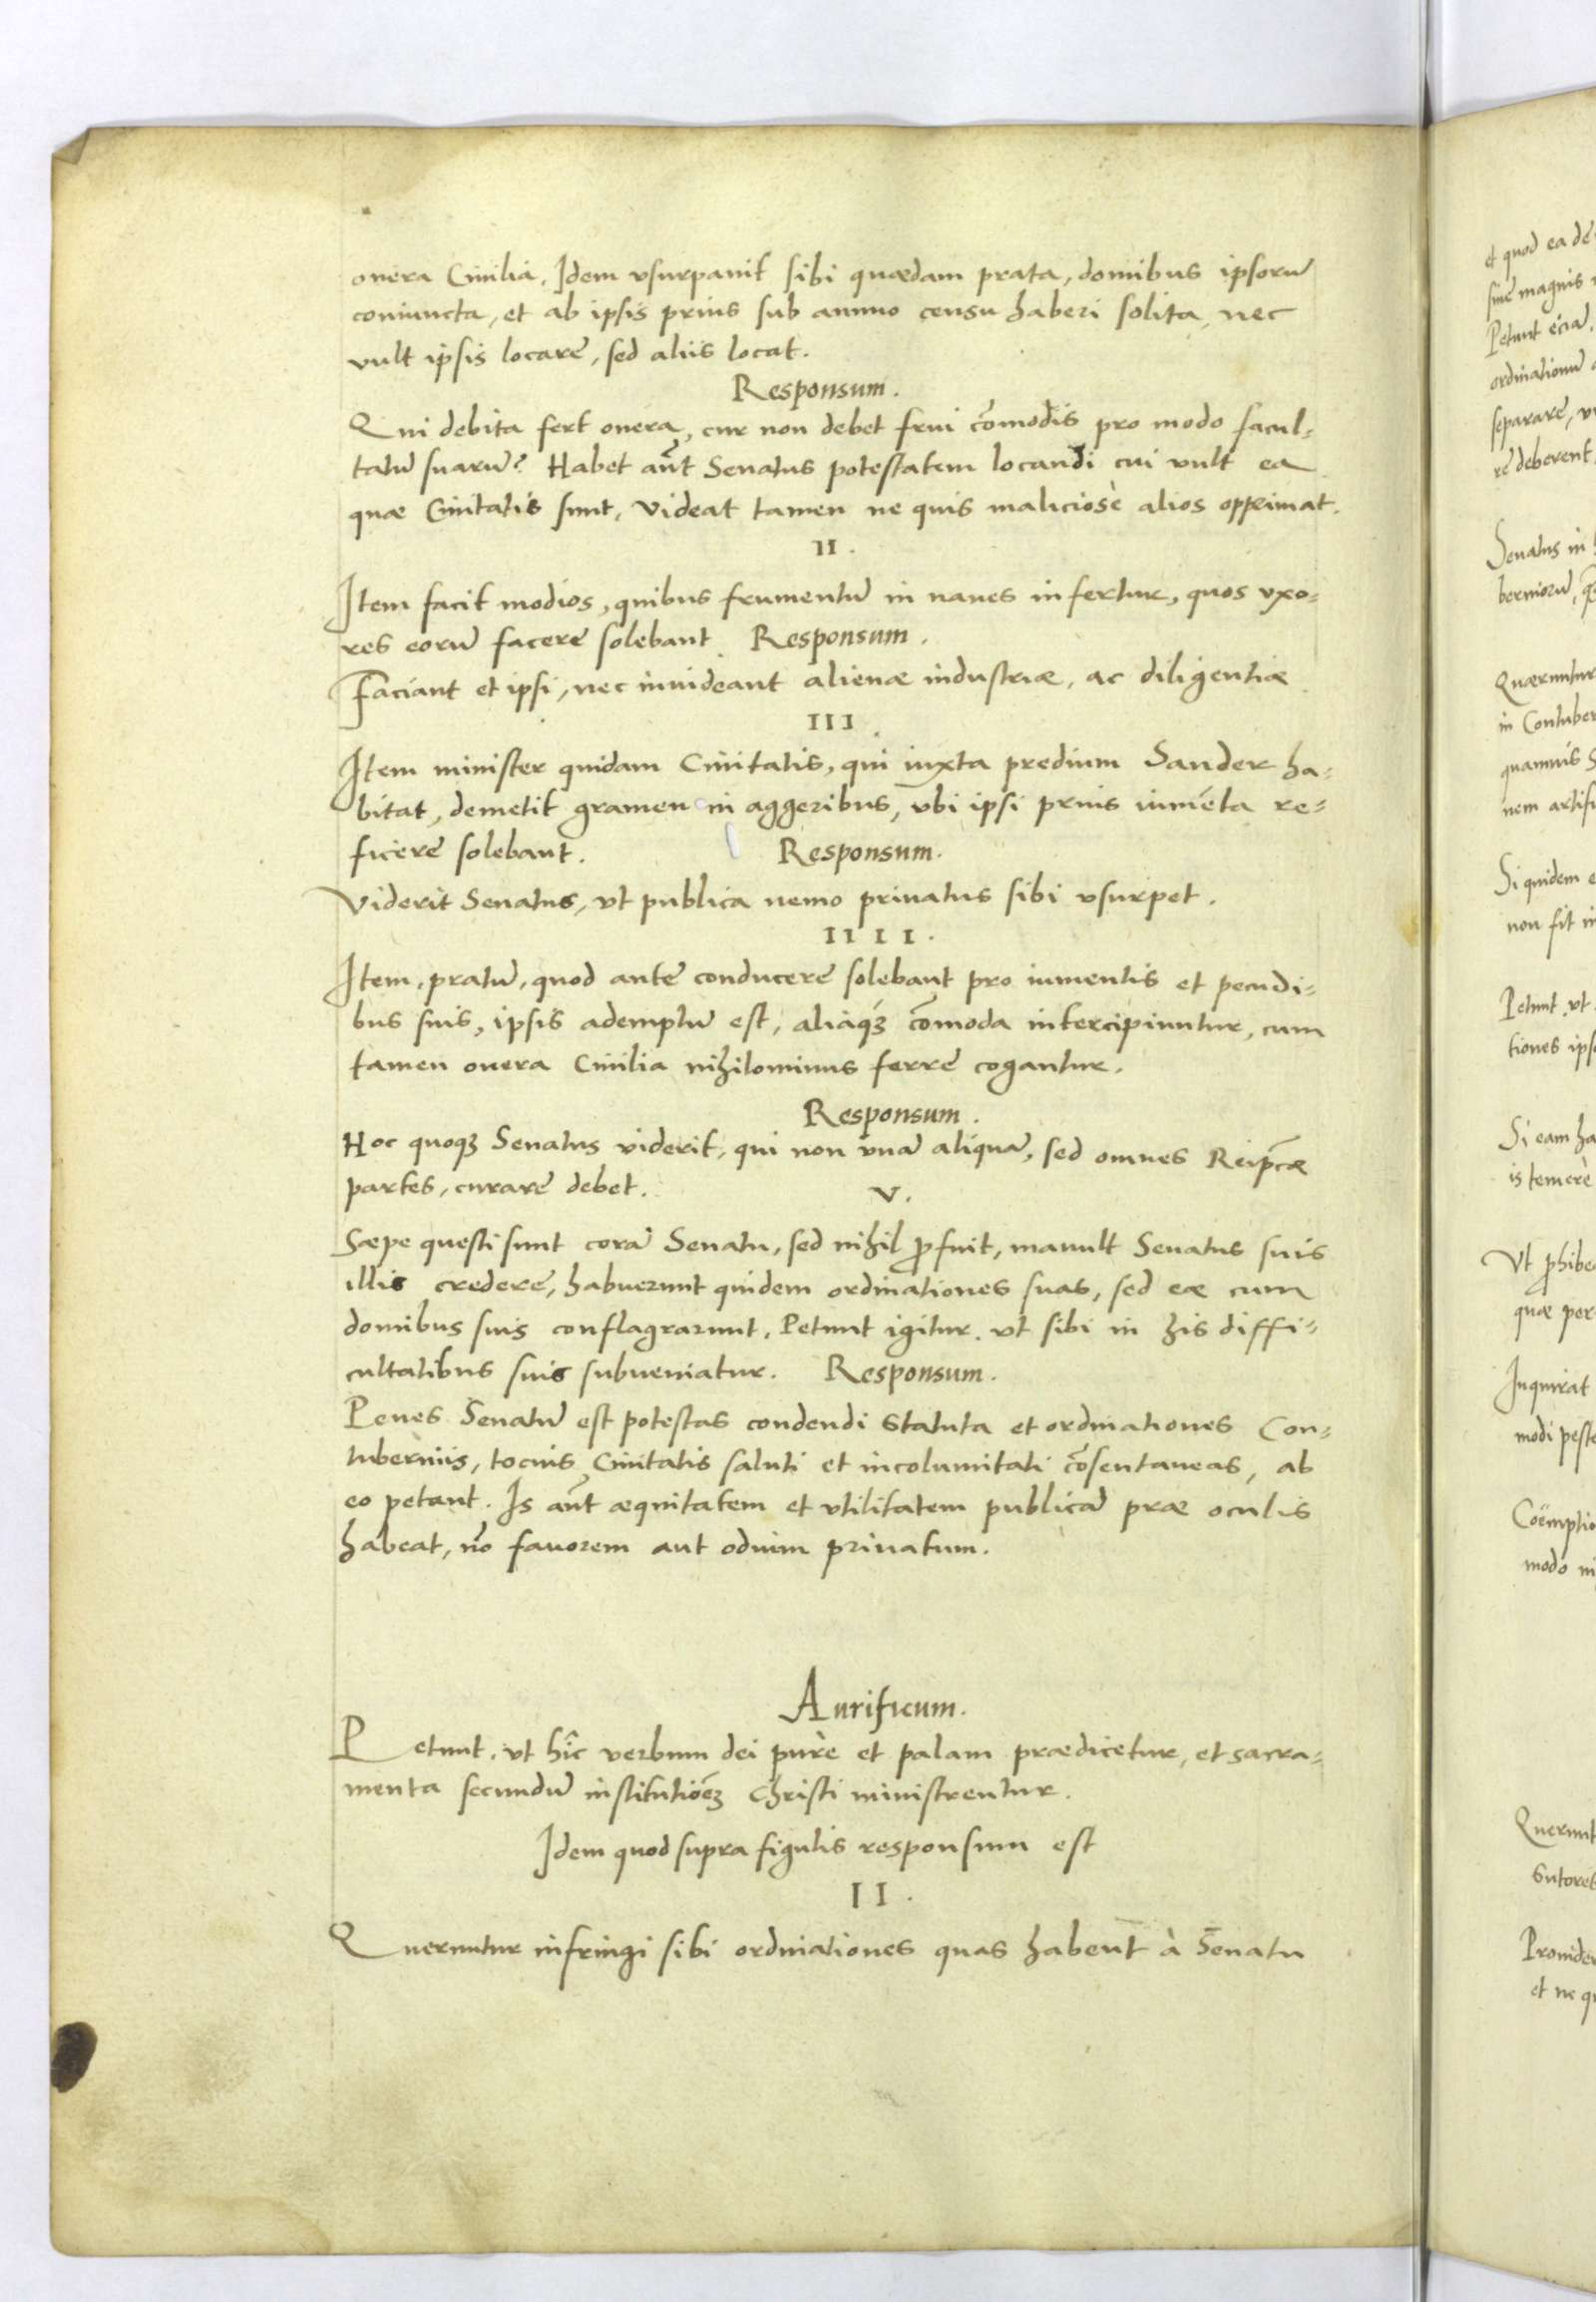 onera Ciuilia. Idem vsurpauit sibi quædam prata, domibus ipsorū
coniuncta, et ab ipsis prius sub annuo censu haberi solita, nec
vult ipsis locare, sed aliis locat.
Responsum.
Qui debita fert onera, cur non debet frui cōmodis pro modo facul-
tatū suarū? Habet aūt Senatus potestatem locandi cui vult ea
quæ Ciuitatis sunt, Videat tamen ne quis maliciosè alios opprimat.
II.
Item facit modios, quibus frumentū in naues infertur, quos vxo-
res eorū facere solebant. Responsum.
Faciant et ipsi, nec inuideant alienæ industriæ, ac diligentiæ
III.
Item minister quidam Ciuitatis, qui iuxta predium Sander ha-
bitat, demetit gramen in aggeribus, vbi ipsi prius iumēta re-
ficere solebant. Responsum.
Viderit Senatus, vt publica nemo priuatus sibi vsurpet.
IIII.
Item, pratū, quod ante conducere solebant pro iumentis et pecudi-
bus suis, ipsis ademptū est, aliaqꝫ cōmoda intercipiuntur, cum
tamen onera Ciuilia nihilominus ferre cogantur.
Responsum.
Hoc quoqꝫ Senatus viderit, qui non vnā aliquā, sed omnes Reip̄cæ
partes, curare debet. V.
Sæpe questi sunt corā Senatu, sed nihil ꝓfuit, mauult Senatus suis
illis credere, habuerunt quidem ordinationes suas, sed eæ cum
domibus suis conflagrarunt, Petunt igitur, vt sibi in his diffi-
cultatibus suis subueniatur. Responsum.
Penes Senatū est potestas condendi Statuta et ordinationes Con-
tuberniis, tocius Ciuitatis saluti et incolumitati cōsentaneas, ab
eo petant. Is aūt æquitatem et vtilitatem publicā præ oculis
habeat, nō fauorem aut odium priuatum.
Aurificum.
Petunt, vt hîc verbum dei purè et palam prædicetur, et sacra-
menta secundū institutiōēꝫ Christi ministrentur.
Idem quod supra figulis responsum est
II.
Queruntur infringi sibi ordinationes quas habent à Senatu
et quod ea de
sine magnis
Petunt eciā
ordinationū
separare, v
re deberent
Senatus in
berniorū,
Quæruntur
in Contuber
quamuis S
nem artifi
Si quidem e
non fit in
Petunt, vt
tiones ips
Si eam ha
is temerè
Vt ꝓhibe
quæ per
Inquirat
modi peste
Coëmptio
modo ni
Querunt
Sutores
Prouider
et ne q